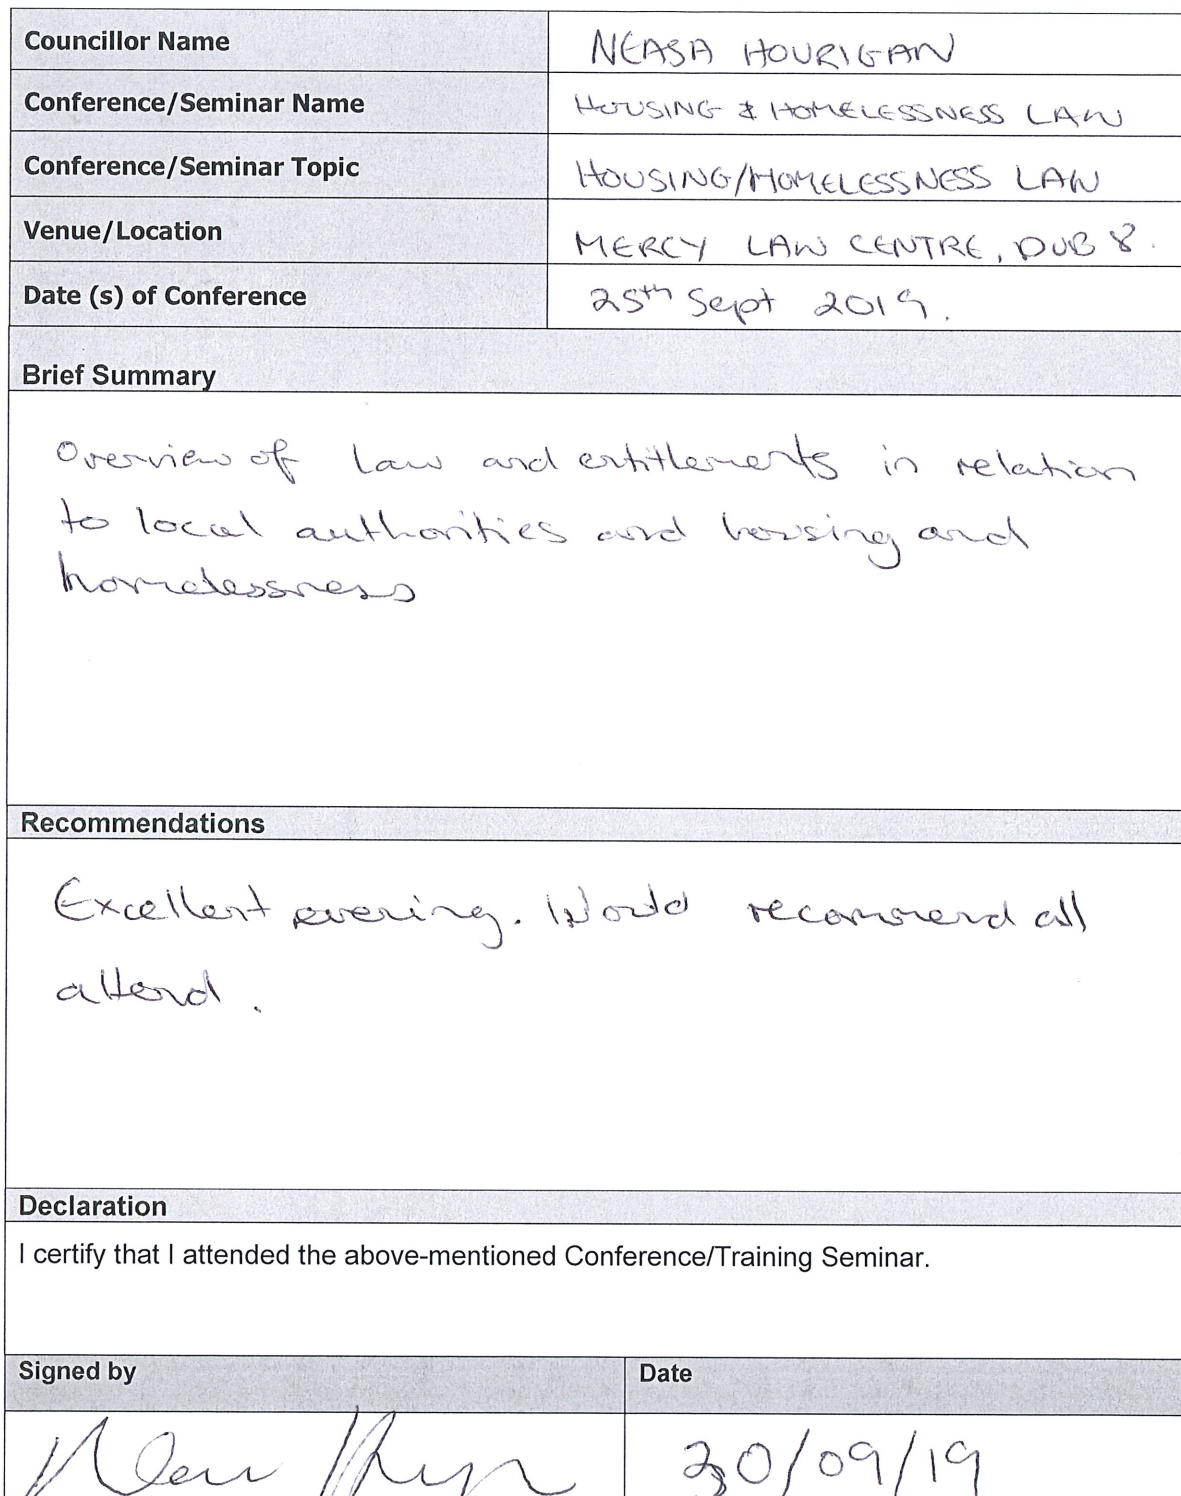 Councillor Name NEASA HOURIGAN
Conference/Seminar Name HOUSING & HOMELESSNESS LAW
Conference/Seminar Topic HOUSING/HOMELESSNESS LAW
Venue/Location MERCY LAW CENTRE, DUB 8.
Date (s) of Conference 25th Sept 2019.
Brief Summary
Overview of law and entitlements in relation
to local authorities and housing and
homelessness
Recommendations
Excellent evening. Would recommend all
attend.
Declaration
I certify that I attended the above-mentioned Conference/Training Seminar.
Signed by Date
30/09/19